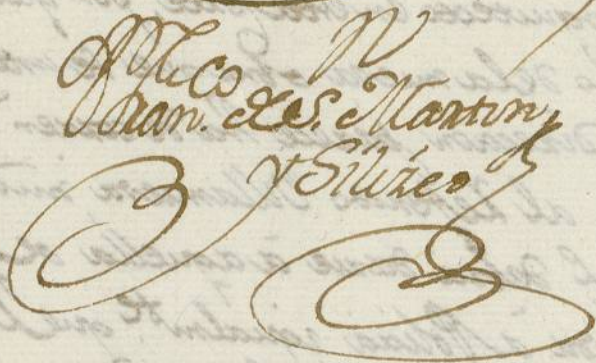 Fran.co de S. Martin
y Silizeo